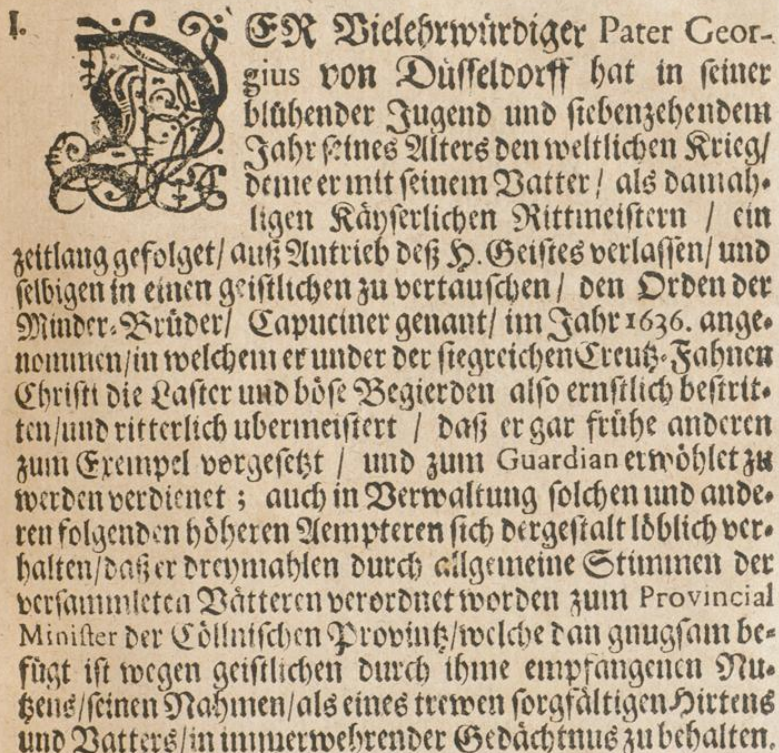 I.
DER Vielehrwürdiger Pater Geor-
gius von Düsseldorff hat in seiner
blühender Jugend und siebenzehendem
Jahr seines Alters den weltlichen Krieg/
deme er mit seinem Vatter / als damah-
ligen Käyserlichen Rittmeistern / ein
zeitlang gefolget/ auß Antrieb deß H. Geistes verlassen/ und
selbigen in einen geistlichen zu vertauschen / den Orden der
Minder-Brüder/ Capuciner genant/ im Jahr 1636. ange-
nommen/in welchem er under der siegreichen Creutz-Fahnen
Christi die Laster und böse Begierden also ernstlich bestrit-
ten/und ritterlich ubermeistert / daß er gar frühe anderen
zum Exempel vorgesetzt / und zum Guardian erwöhlet zu
werden verdienet ; auch in Verwaltung solchen und ande-
ren folgenden höheren Aempteren sich dergestalt löblich ver-
halten/daß er dreymahlen durch allgemeine Stimmen der
versammleten Vätteren verordnet worden zum Provincial
Minister der Cöllnischen Provintz/welche dan gnugsam be-
fügt ist wegen geistlichen durch ihme empfangenen Nu-
tzens/seinen Nahmen/als eines trewen sorgfältigen Hirtens
und Vatters/in immerwehrender Gedächtnus zu behalten